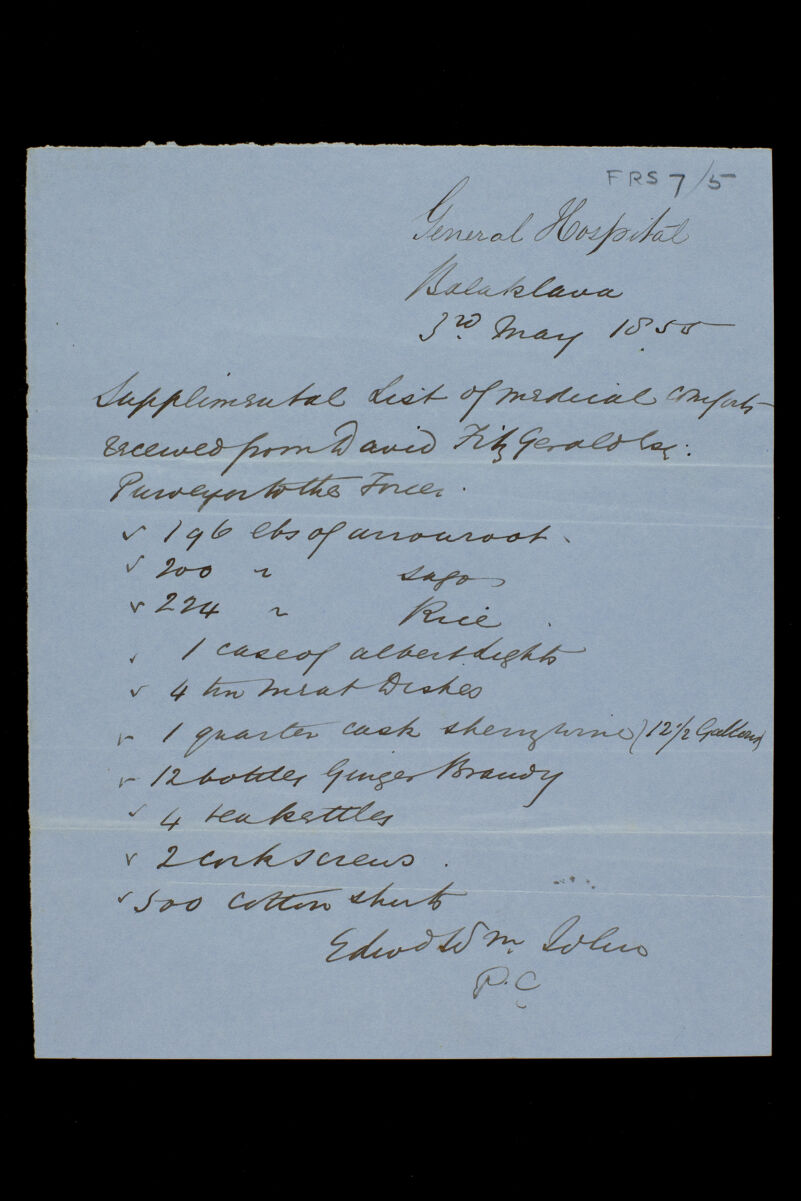 FRS 7/5
General Hospital
Balaklava
3rd May 1855
Supplimental List of medical comforts
received from David FitzGerald Esq:
Purveyor to the Forces.
✓ 196 lbs of arrowroot.
✓ 200 " sago
✓ 224 " Rice.
✓ 1 case of albert Lights
✓ 4 tin meat Dishes
✓ 1 quarter cask sherry wine (12 1/2 Gallons)
✓ 12 bottles Ginger Brandy
✓ 4 tea kettles
✓ 2 cork screws.
✓ 500 cotton shirts
Edwd Wm
P.C